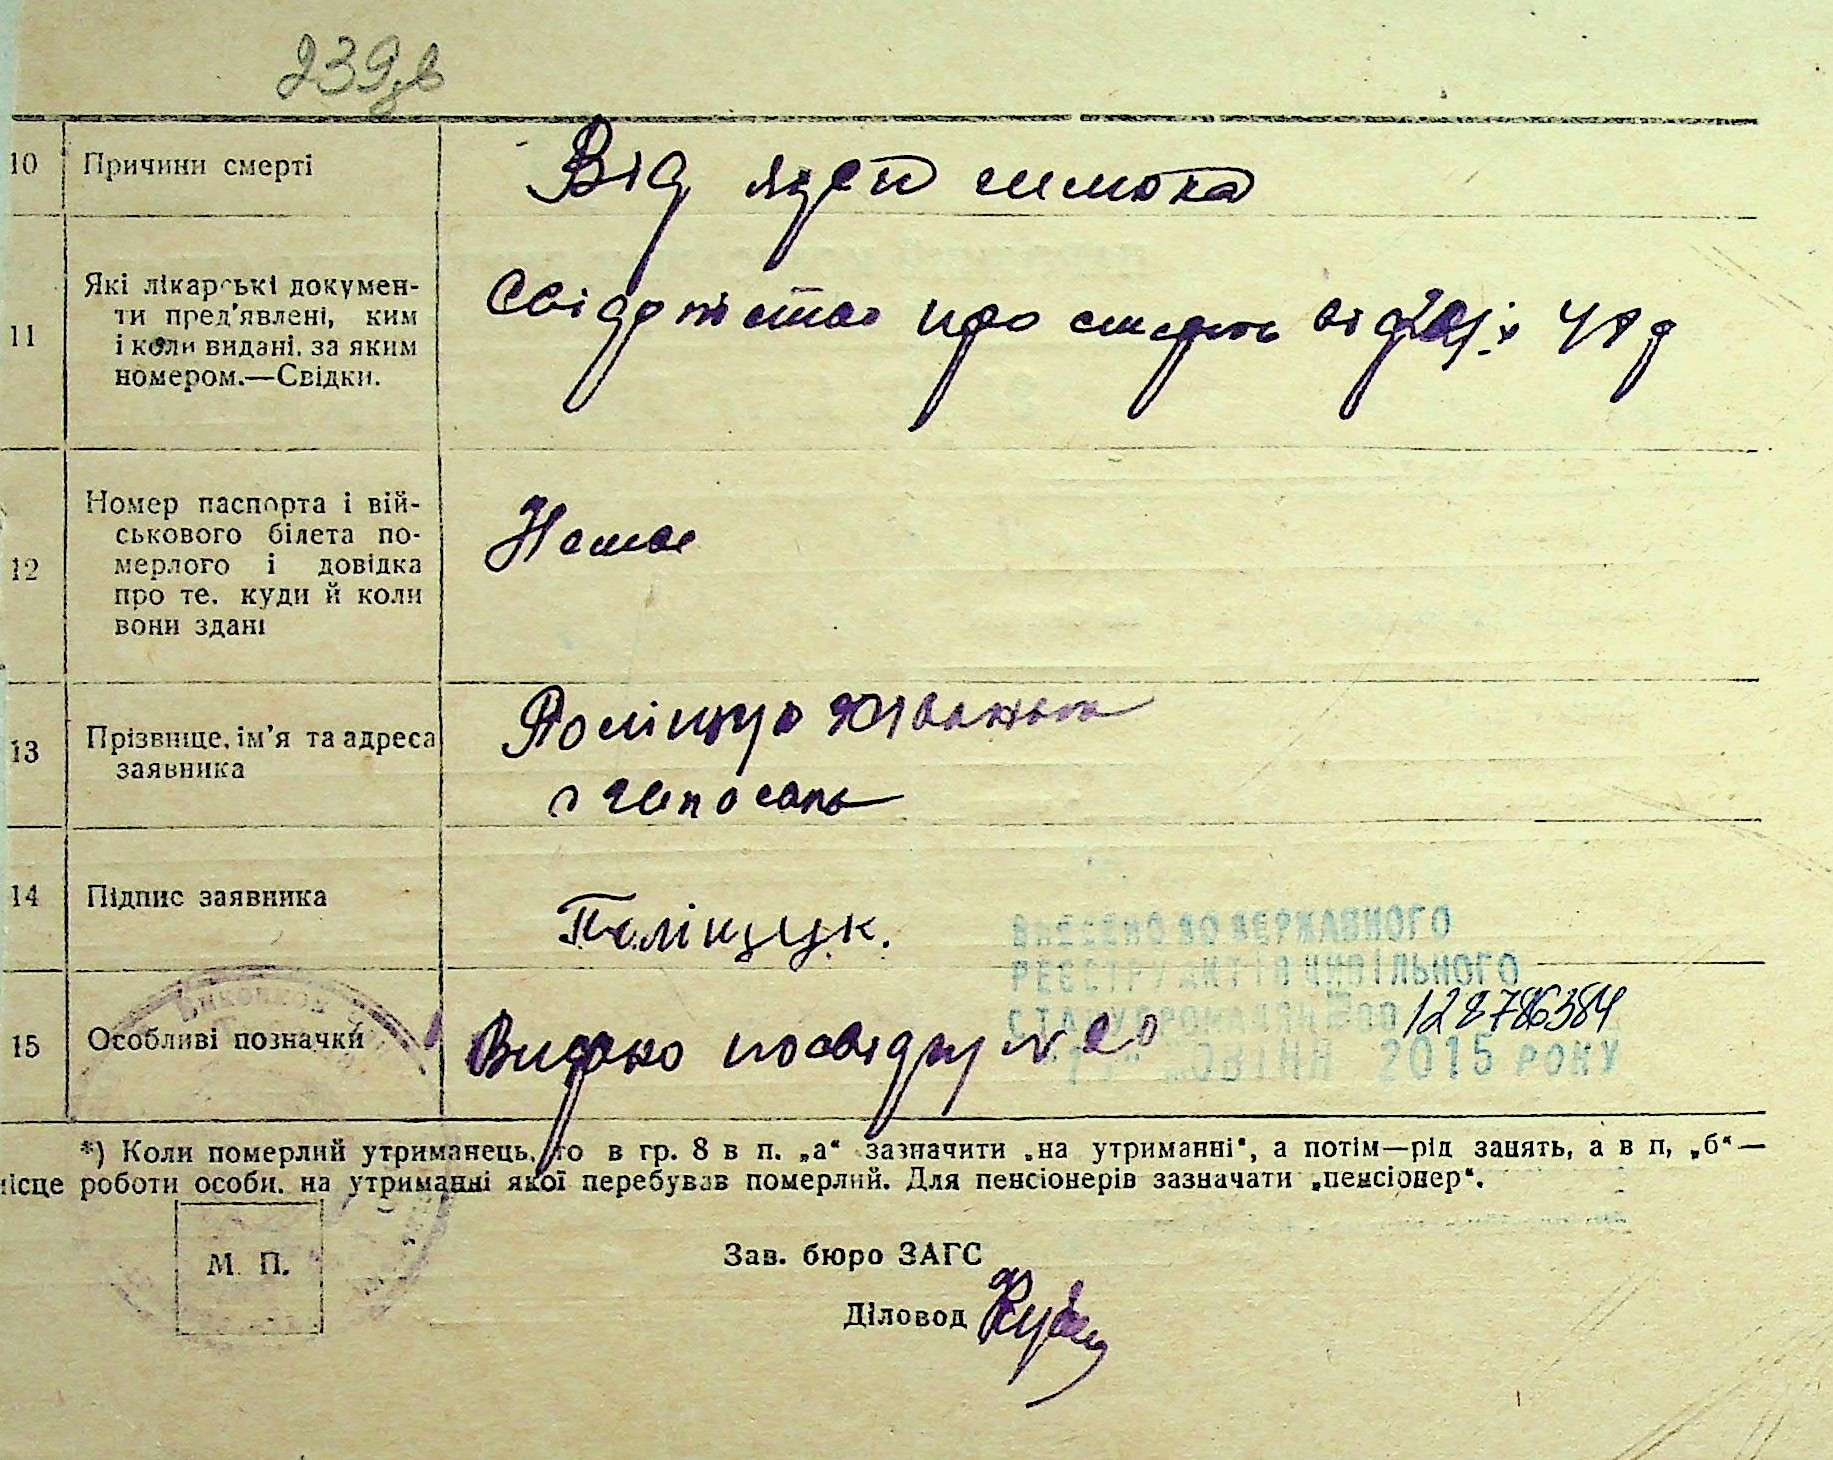 239зв
10 Причини смерті Від язви шлюнка
11 Які лікарські докумен-
ти пред'явлені, ким
і коли видані, за яким
номером.—Свідки.
про смерть від
12 Номер паспорта і вій-
ськового білета по-
мерлого і довідка
про те, куди й коли
вони здані
Немає
13 Прізвище, ім'я та адреса
заявника
Поліщук
14 Підпис заявника Поліщук.
ВНЕСЕНО ДО ДЕРЖАВНОГО
РЕЄСТРУ АКТІВ ЦИВІЛЬНОГО
СТАНУ ГРОМАДЯН 128786384
ЖОВТНЯ 2015 РОКУ
15 Особливі позначки Видано посвідку № 20
*) Коли померлий утриманець, то в гр. 8 в п. „а“ зазначити „на утриманні“, а потім—рід занять, а в п, „б“—
місце роботи особи, на утриманні якої перебував померлий. Для пенсіонерів зазначати „пенсіонер“.
М. П.
Зав. бюро ЗАГС
Діловод